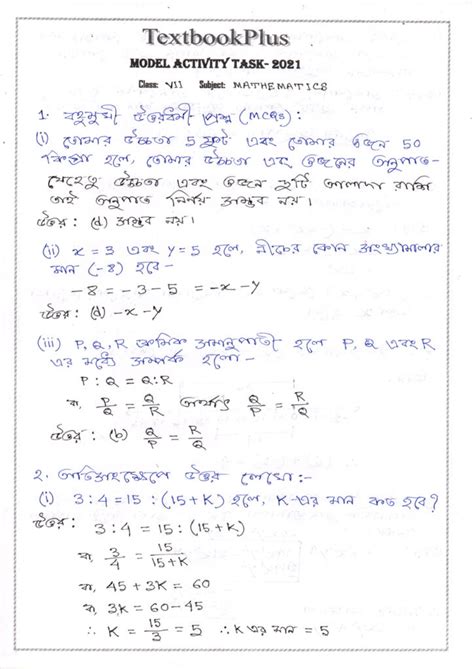 TextbookPlus
MODEL ACTIVITY TASK- 2021
Class: VII Subject: MATHEMATICS
১. বহুমুখী উত্তরধর্মী প্রশ্ন (MCQs) :
(i) তোমার উচ্চতা 5 ফুট এবং তোমার ওজন 50
কিগ্রা হলে, তোমার উচ্চতা এবং ওজনের অনুপাত-
যেহেতু উচ্চতা এবং ওজন দুটি আলাদা রাশি
তাই অনুপাত নির্ণয় সম্ভব নয়।
উত্তর : (d) সম্ভব নয়।
(ii) x = 3 এবং y = 5 হলে, নীচের কোন সংখ্যামালার
মান (-8) হবে -
-8 = -3-5 = -x-y
উত্তর : (d) -x-y
(iii) P, Q, R ক্রমিক সমানুপাতী হলে P, Q এবং R
এর মধ্যে সম্পর্ক হলো -
P : Q = Q : R
বা, P/Q = Q/R অর্থাৎ Q/P = R/Q
উত্তর : (b) Q/P = R/Q
২. অতিসংক্ষেপে উত্তর লেখো:-
(i) 3:4 = 15 : (15+K) হলে, K-এর মান কত হবে?
উত্তর : 3:4 = 15 : (15+K)
বা, 3/4 = 15/15+K
বা, 45 + 3K = 60
বা, 3K = 60-45
∴ K = 15/3 = 5 ∴ K এর মান = 5